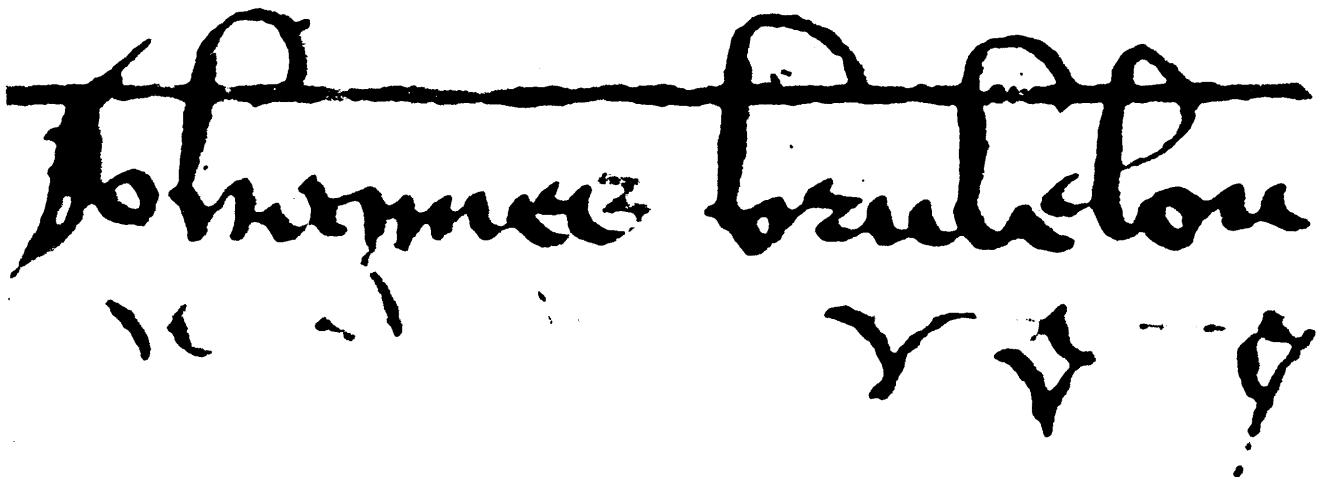 Johannes brulelou